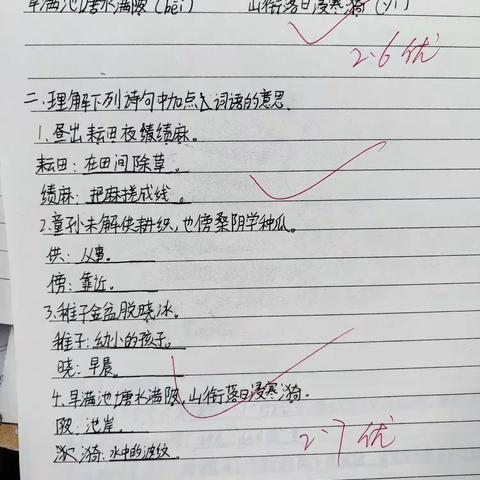 草满池塘水满陂(bēi) 山衔落日浸寒漪(yī)
2.6 优
二.理解下列诗句中加点词语的意思.
1.昼出耘田夜绩麻。
耘田:在田间除草。
绩麻:把麻搓成线。
2.童孙未解供耕织,也傍桑阴学种瓜。
供:从事。
傍:靠近。
3.稚子金盆脱晓冰。
稚子:幼小的孩子。
晓:早晨。
4.草满池塘水满陂,山衔落日浸寒漪。
陂:池岸。
漪:水中的波纹
2.7 优